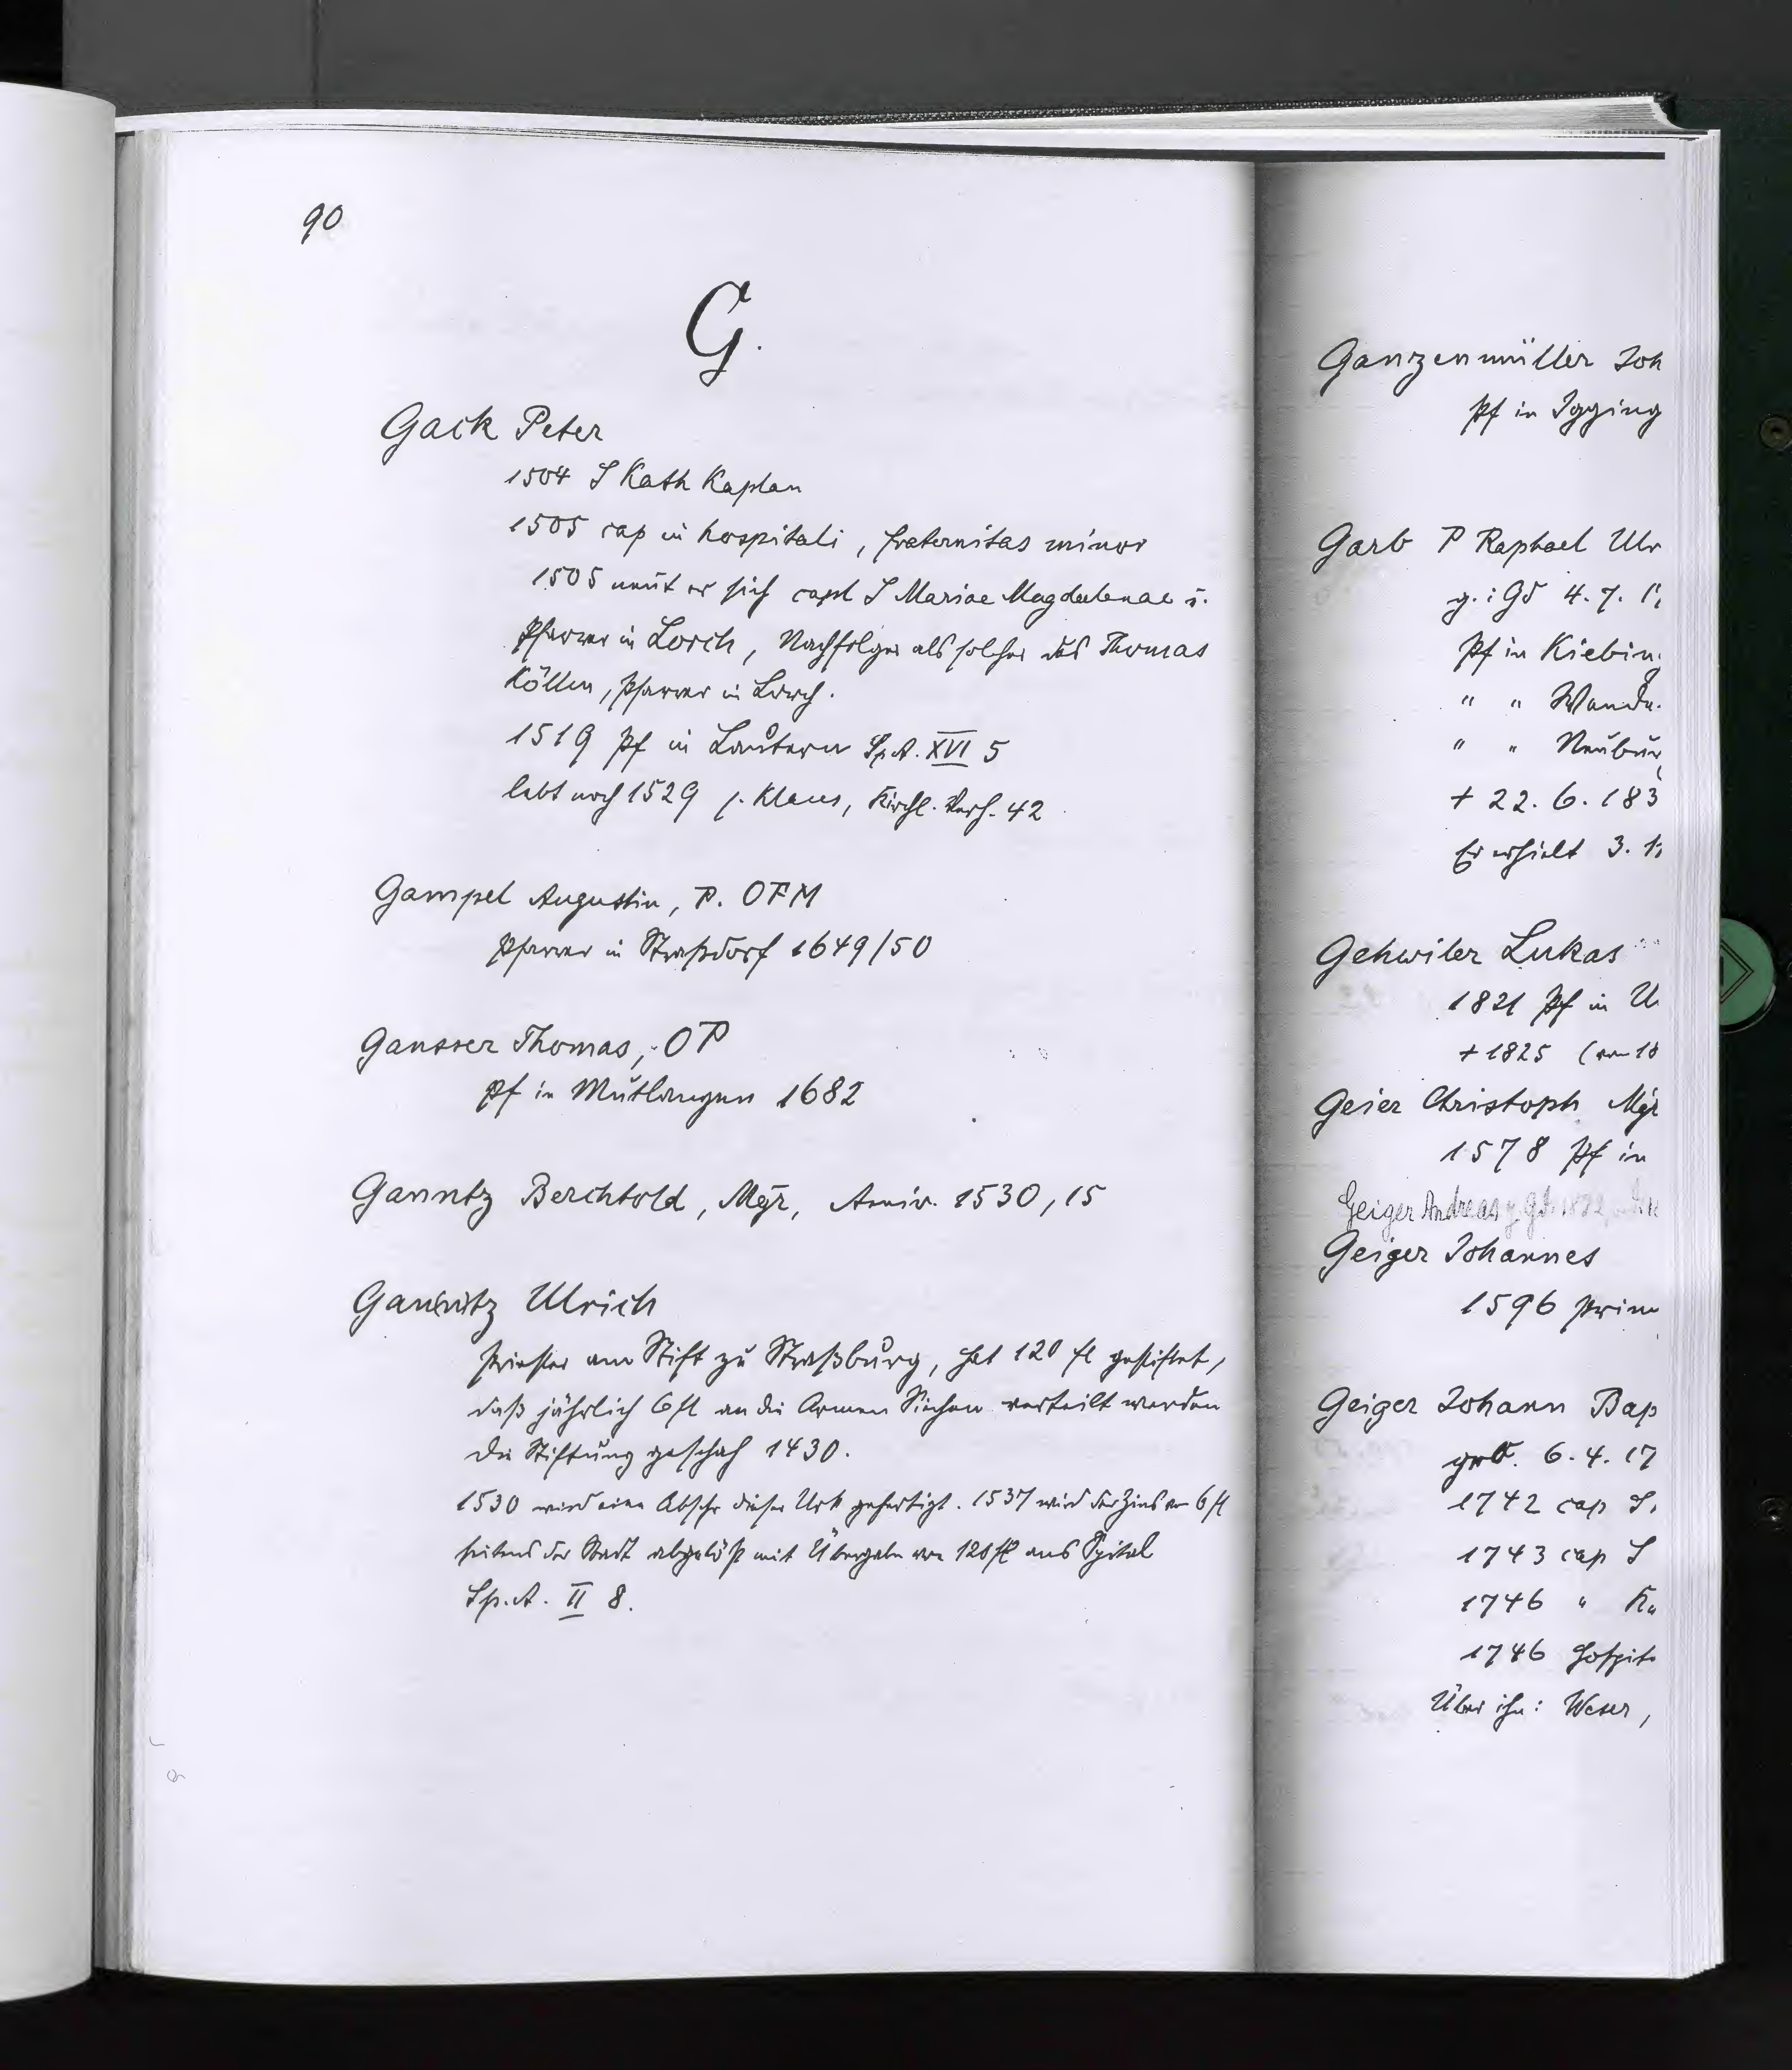 90
G.
Gack Peter
1504 S Kath Kaplan
1505 cap in hospitali, fraternitas minor
1505 nennt er sich capl S Mariae Magdalenae u.
Pfarrer in Lorch, Nachfolger als solcher des Thomas
Köllin, Pfarrer in Lorch.
1519 Pf in Lautern Sp.A. XVI 5
lebt noch 1529 s. Klaus, Kirchl. Verh. 42
Gampel Augustin, P. OFM
Pfarrer in Straßdorf 1649/50
Gansser Thomas, OP
Pf in Mutlangen 1682
Ganntz Berchtold, Mgr, Anniv. 1530, 15
Ganntz Ulrich
Priester am Stift zu Straßburg, hat 120 fl gestiftet,
daß jährlich 6 fl an die Armen Siechen verteilt werden
Die Stiftung geschah 1430.
1530 wird eine Abschr dieser Urk gefertigt. 1537 wird der Zins von 6 fl
seitens der Stadt abgelöst mit Übergabe von 120 fl ans Spital
Sp.A. II 8.
Ganzenmüller Joh
Pf in Igging
Garb P Raphael Ulr
g. i Gd 4. 7. 1
Pf in Kiebin
" " 
" " Neubur
+ 22. 6. 183
Er erhielt 3. 1
Gehwiler Lukas
1821 Pf in U
+ 1825 (von 18
Geier Christoph Mgr
1578 Pf in
Geiger Andreas g. Gd
Geiger Johannes
1596 Prim
Geiger Johann Bap
geb. 6. 4. 17
1742 cap S.
1743 cap S
1746 " Ka
1746 Hospit
Über ihn: Weser,